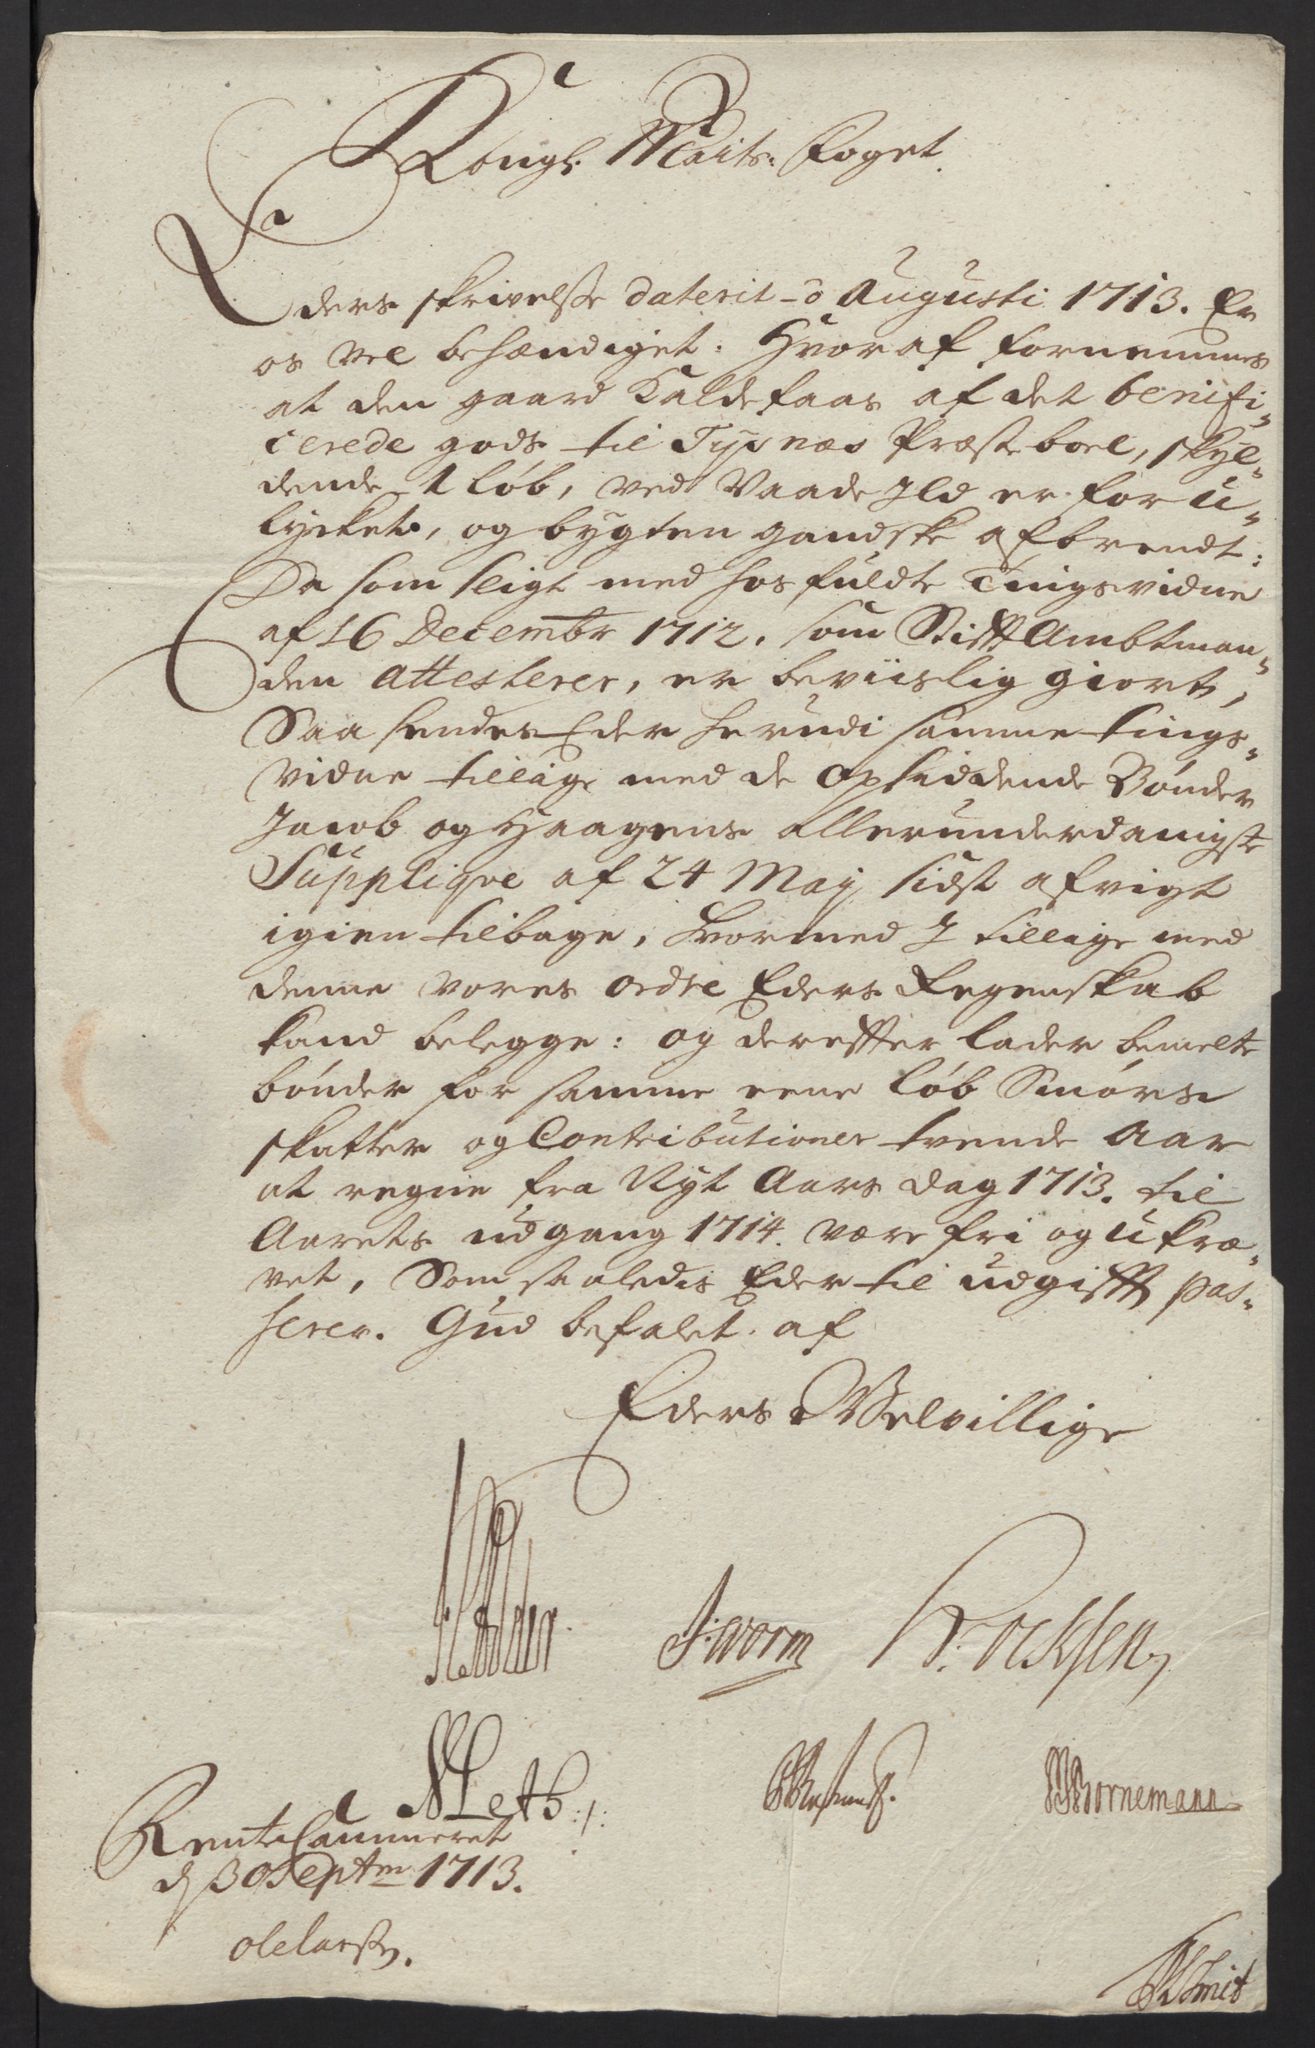 Kongl: Maits: Foget.
Eders skrivelse daterit Augusti 1713. Er
os vel behændiget: Hvoraf fornemmes
at den gaard Kaldefaas af det benifi„
cerede gods til Tysnæs Præsteboel, skyl„
dende 1 Løb, ved Vaade Ild er for u„
lycket, og bygten gandske afbrendt:
Da som sligt med hosfuldte Tingsvidne
af 16 Decembr 1712. som Stifft Ambtman„
den Attesterer, er beviislig giort,
Saa sendes Eder herudi samme tings„
vidne tillige med de opsiddende Bønder
Jacob og Haagens allerunderdanigste
Supplique af 24 Maij sidst afvigt
igien tilbage, hvormed I tillige med
denne vores ordre Eders Regenskab
kand belegge: og derefter lader bemelte
bønder for samme eene Løb Smørs
skatter og Contributioner tvende Aar
at regne fra Nyt Aars dag 1713. til
Aarets udgang 1714. være fri og ukræ„
vet, Som saaledis Eder til udgifft pas„
serer. Gud befalet af
Eders Velvillige
J: Worm
N Leth:/:
Bornemann
Rente Cammeret
d 30 Septm 1713.
Ole Larss.
Smit